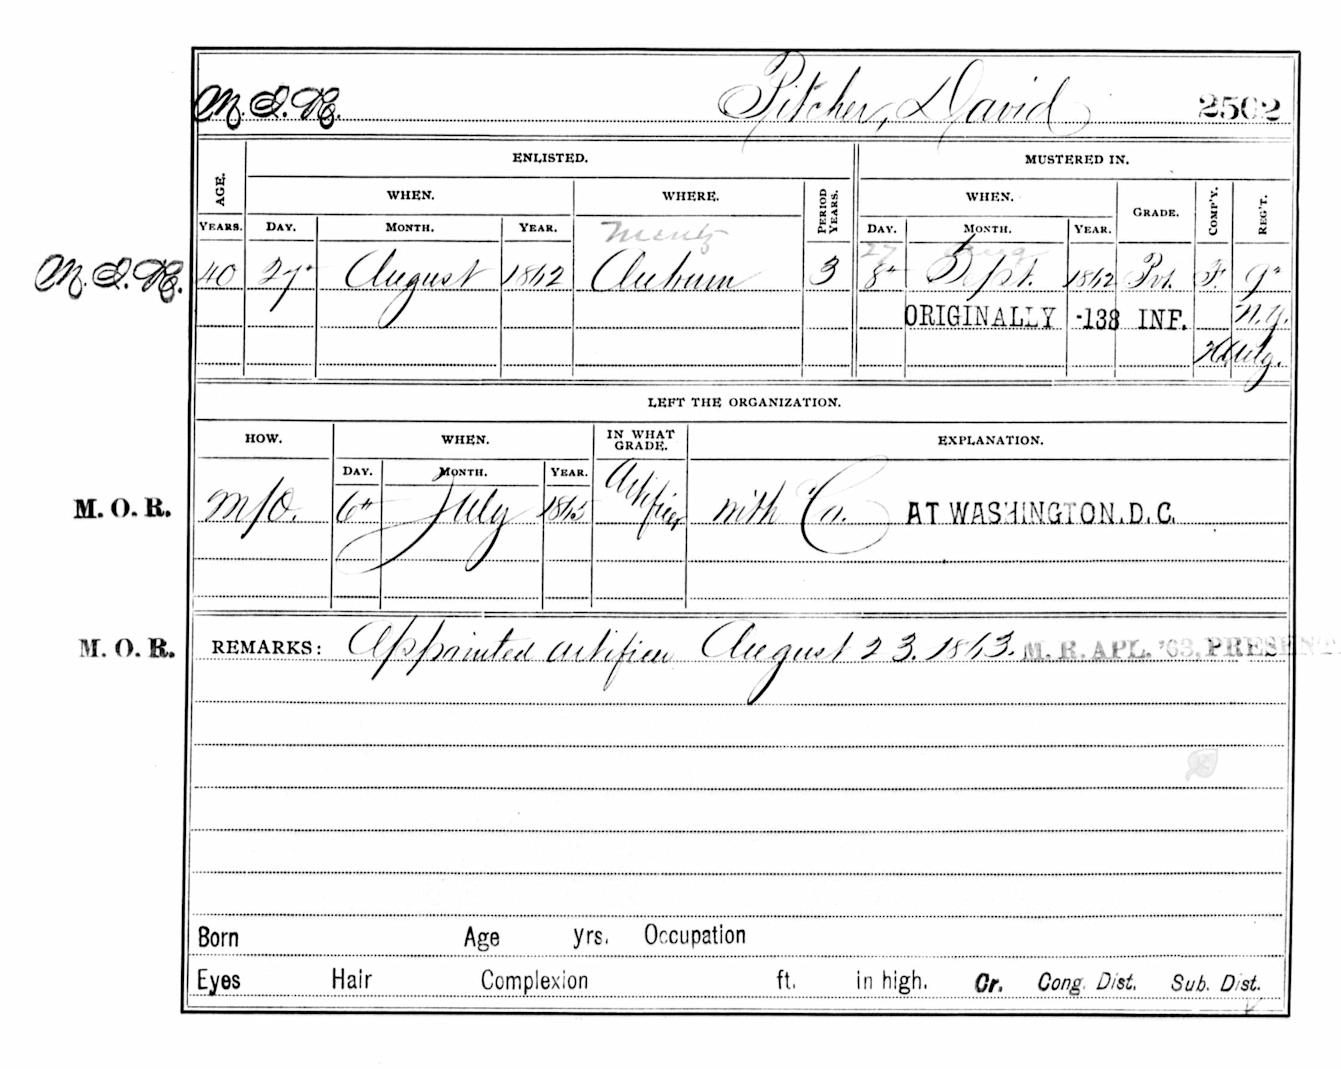 M. I. R. Pitcher, David 2502
ENLISTED. MUSTERED IN.
AGE. WHEN. WHERE. PERIOD YEARS. WHEN. GRADE. COMP'Y. REG'T.
YEARS. DAY. MONTH. YEAR. Mentz DAY. MONTH. YEAR.
27 Aug
M. I. R. 40 27" August 1862 Auburn 3 8" Sept. 1862 Pvt. F 9"
ORIGINALLY -138 INF. N.Y.
H Artg.
LEFT THE ORGANIZATION.
HOW. WHEN. IN WHAT GRADE. EXPLANATION.
DAY. MONTH. YEAR.
M. O. R. M/O. 6" July 1865 Artificer with Co. AT WASHINGTON.D.C.
M. O. R. REMARKS: Appointed artificer August 23. 1863. M. R. APL. '63, PRESENT.
Born Age yrs. Occupation
Eyes Hair Complexion ft. in high. Cr. Cong. Dist. Sub. Dist.